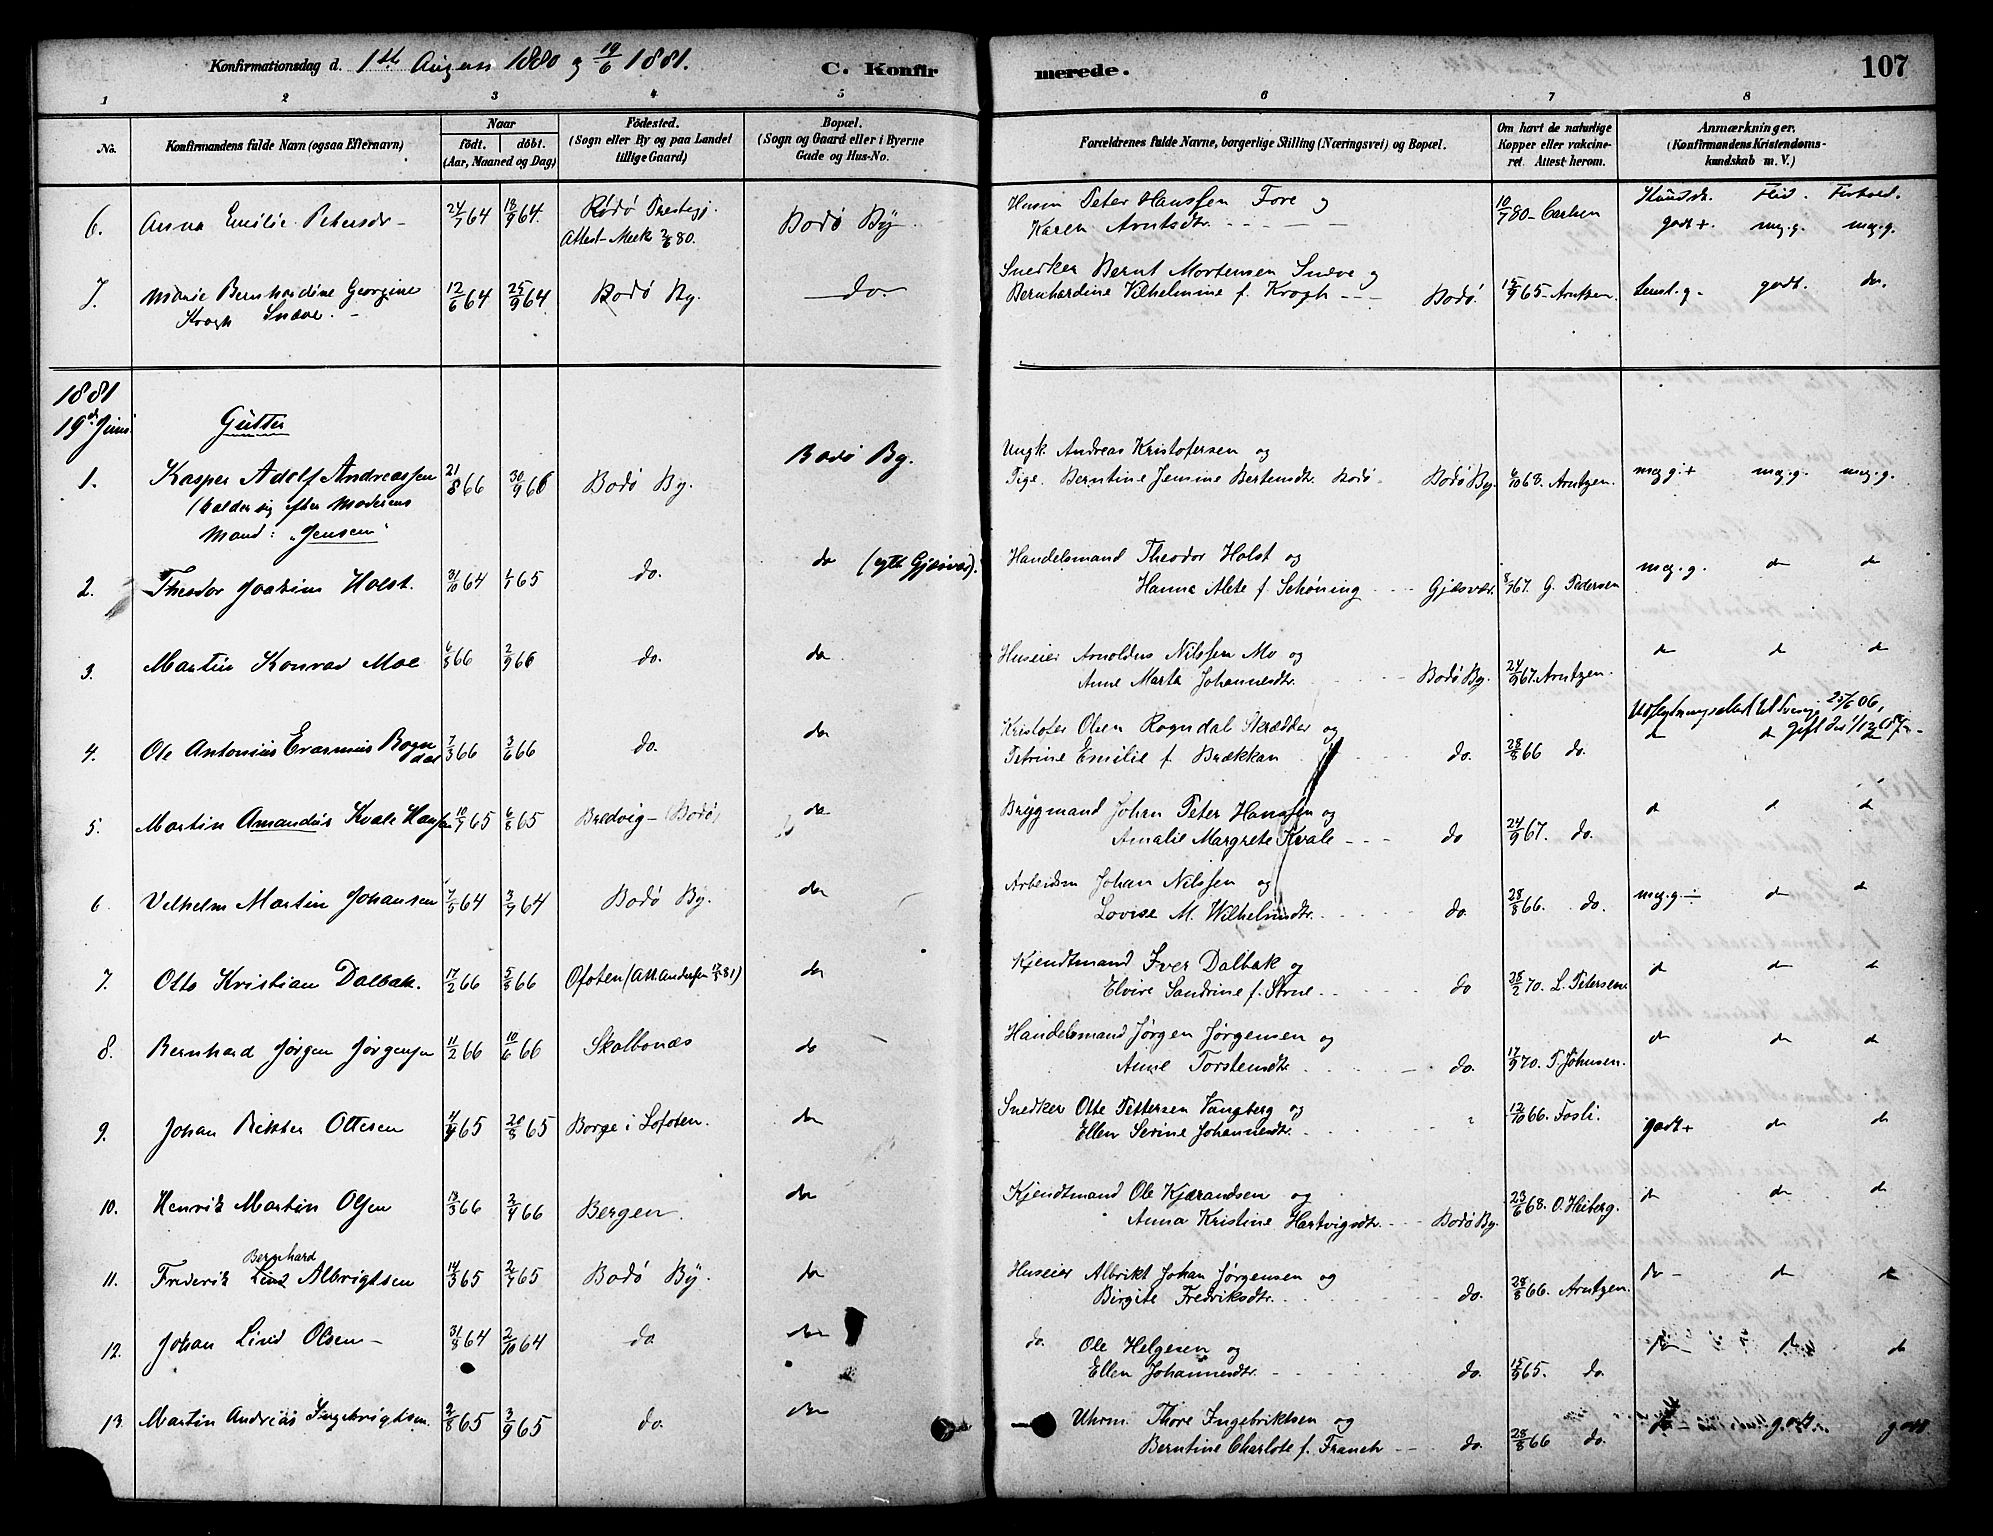 Konfirmationsdag d. 1ste August 1880 og 19/6 1881. C. Konfirmerede. 107
1 2 3 4 5 6 7 8
No. Konfirmandens fulde Navn (ogsaa Efternavn) Naar født. døbt. (Aar, Maaned og Dag) Fødested. (Sogn eller By og paa Landet tillige Gaard) Bopæl. (Sogn og Gaard eller i Byerne Gade og Hus-No.
Forældrenes fulde Navne, borgerlige Stilling (Næringsvei) og Bopæl. Om havt de naturlige Kopper eller vakcineret. Attest herom. Anmærkninger. (Konfirmandens Kristendomskundskab m. V.)
6. Anna Emilie Petersdr 24/7 64 18/9 64. Rødø Prestegj. Attest Meek 2/6 80. Bodø By. Husm Peter Hanssen Fore og Karen Arntsdtr. 10/7 80 Carlsen Kundsk. godt+ Flid. meg.g. Forhold. meg.g.
7. Marie Bernhardine Georgine Krogh Snæve. 12/6 64 25/9 64 Bodø By. do. Snedker Bernt Mortensen Snæve og Bernhardine Vilhelmine f. Krogh Bodø. 15/9 65 Arntzen. Temt.g. godt. do.
1881
19de Juni. Gutter
1. Kasper Adolf Andreassen (kalder sig efter Moderens Mand: "Jensen" 21/8 66 30/9 66 Bodø By. Bodø By. Ungk. Andreas Kristofersen og Pige. Berntine Jensine Bertensdtr. Bodø Bodø By. 6/10 68. Arntzen. meg.g.+ meg.g. meg.g.
2. Theodor Joakim Holst. 31/10 64 1/1 65 do. do (Gjæsvær). Handelsmand Theodor Holst og Hanna Alete f. Schøning Gjæsvær. 8/9 67. G. Pedersen meg.g. do do
3. Martin Konrad Moe 6/8 66 2/9 66 do. do Huseier Arnoldus Nilssen Mo og Anne Marta Johannesdtr. Bodø By. 24/9 67. Arntzen. do do do
4. Ole Antonius Erasmus Rogndal 7/3 66 3/6 66 do. do Kristofer Olsen Rogndal Skrædder og Petrine Emilie f. Brækkan do. 28/8 66 do. Udflytningsattest 25/6 06, do do do
5. Martin Amandus Kvale Hansen 10/7 65 6/8 65 Bredvig (Bodø) do Brygmand Johan Peter Hanssen og Amalie Margrete Kvale do 24/9 67. do. do do do
6. Vilhelm Martin Johansen 7/8 64 3/9 64 Bodø By. do Arbeidsm Johan Nilssen og Lovise M. Wilhelmsdtr. do. 28/8 66. do. meg.g.÷ do do
7. Otto Kristian Dalbak. 17/2 66 5/8 66 Ofoten (Att. Andersen 81) do Kjendtmand Iver Dalbak og Elvire Sandrine f. Strne do 28/2 70. L. Petersen. do do do
8. Bernhard Jørgen Jørgensen 11/2 66 10/6 66 Skalbonæs do Handelsmand Jørgen Jørgensen og Anne Torstensdtr do. 17/9 70. T. Johnsen. do do do
9. Johan Rikter Ottesen 4/4 65 20/8 65 Borge i Lofoten. do Snedker Otte Pettersen Vangberg og Ellen Serine Johannesdtr. " 12/10 66. Fosli. godt+ do do
10. Henrik Martin Olsen 18/3 66 2/4 66 Bergen. do Kjendtmand Ole Kjærandsen og Anna Kristine Hartvigsdtr. Bodø By. 23/6 68. O. Heiberg. do do do
11. Frederik Bernhard Lind Albrigtsen 14/3 65 2/7 65 Bodø By. do Huseier Albrikt Johan Jørgensen og Birgite Fredriksdtr. do. 28/8 66. Arntzen. do do do
12. Johan Lind Olsen 31/8 64 2/10 64 do do do. Ole Helgesen og Ellen Johannesdtr. do. 15/9 65. do. do do do
13. Martin Andreas Ingebrigtsen. 2/8 65 3/9 65 do. do Uhrm. Thore Ingebriktsen og Berntine Charlote f. Franch do. 28/8 66 do. godt. godt